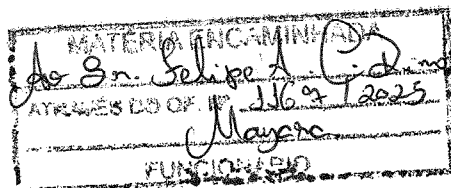 MATÉRIA ENCAMINHADA
Ao Sr. Felipe A.
ATRAVÉS DO OF. Nº 1167 / 2025
Mayara
FUNCIONÁRIO